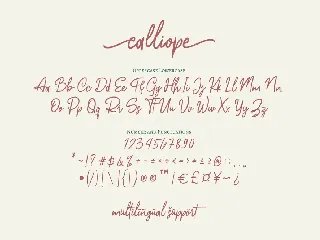 calliope
UPPERCASE LOWERCASE
Aa Bb Cc Dd Ee Ff Gg Hh Ii Jj Kk Ll Mm Nn
Oo Pp Qq Rr Ss Tt Uu Vv Ww Xx Yy Zz
NUMBERS AND PUNCTUATIONS
1234567890
multilingual support